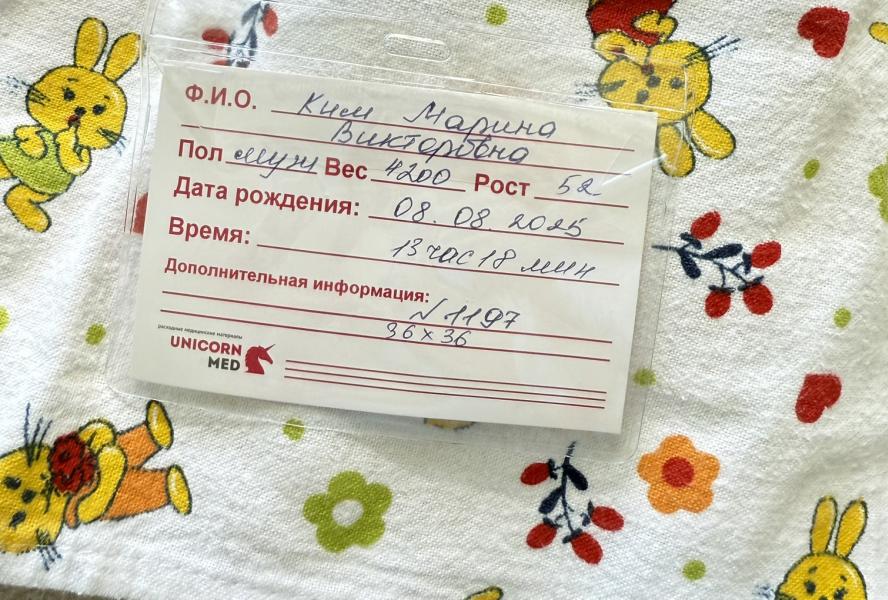 Ф.И.О. Ким Марина
Викторовна
Пол муж Вес 4200 Рост 52
Дата рождения: 08.08.2025
Время: 13 час 18 мин
Дополнительная информация:
№ 1197
36 х 36
расходные медицинские материалы
UNICORN
MED